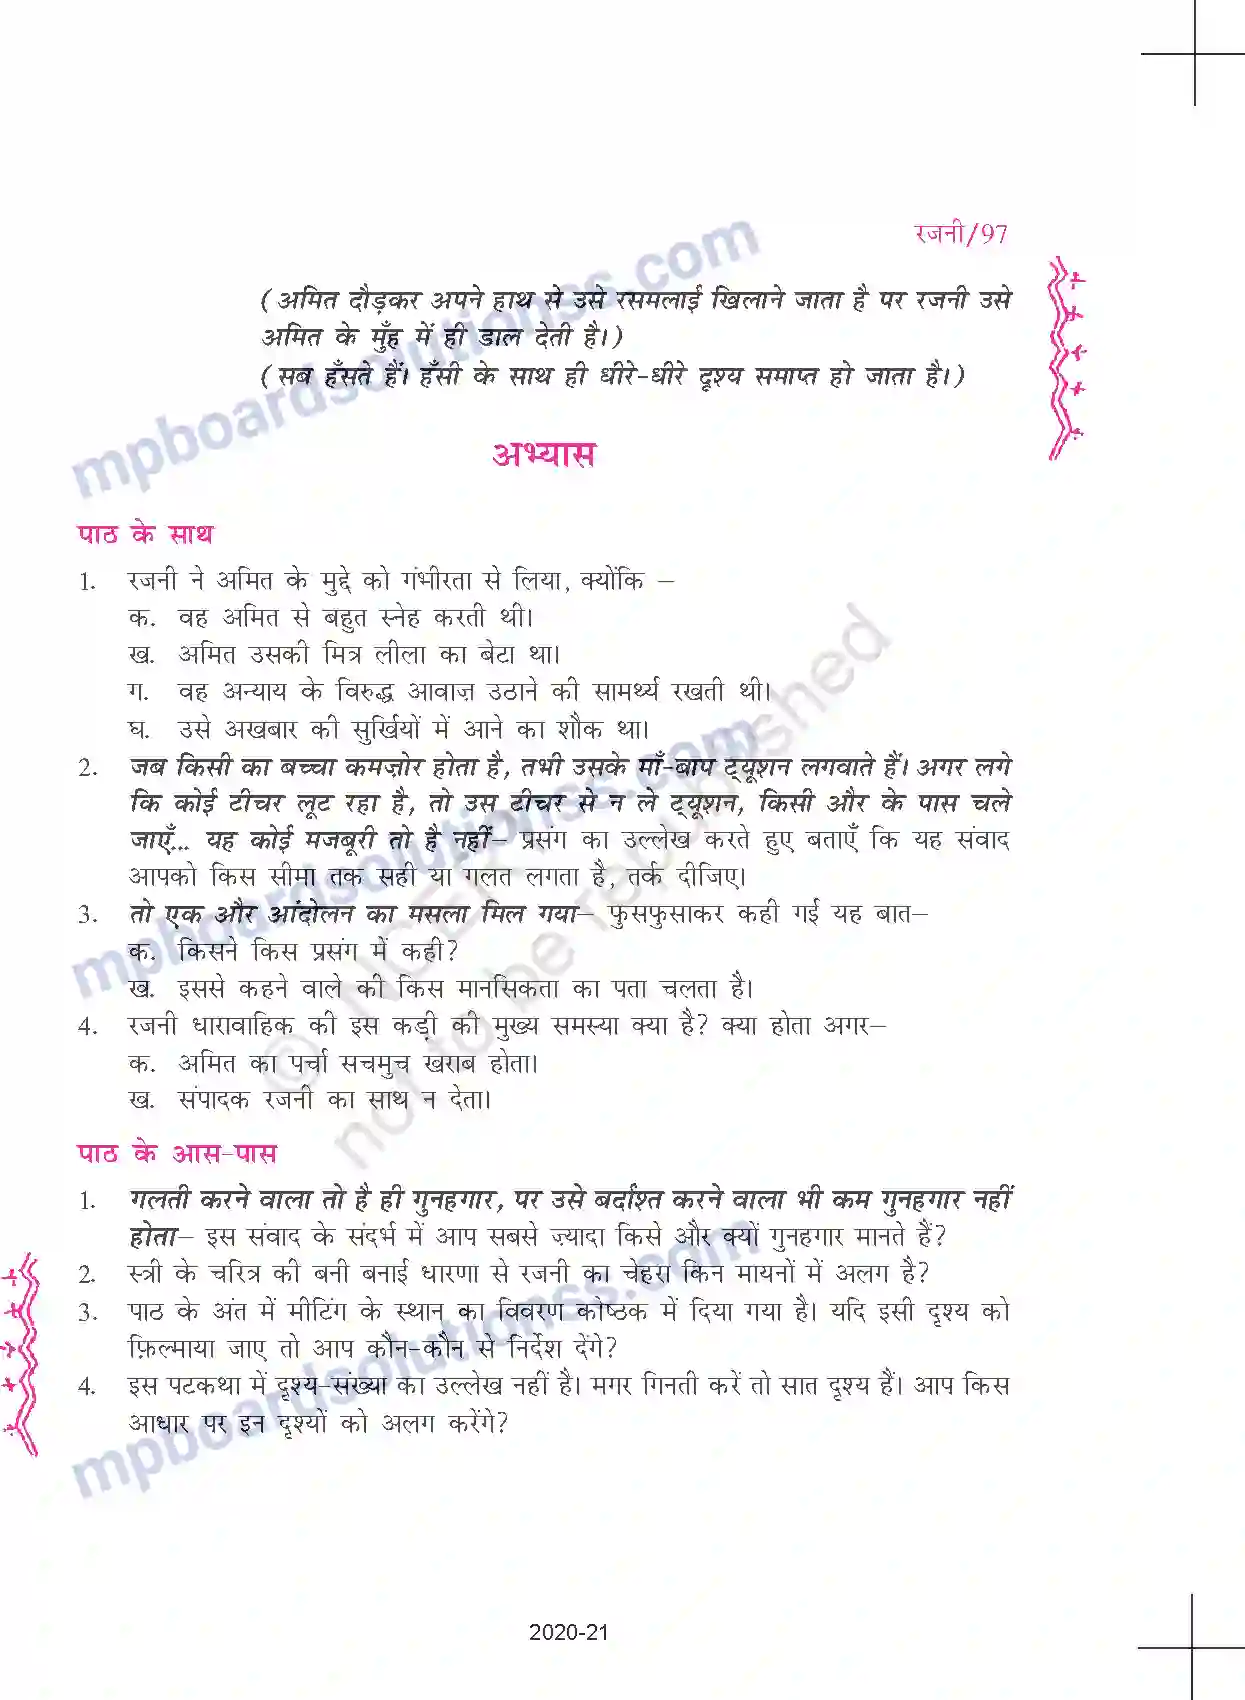 रजनी/97
(अमित दौड़कर अपने हाथ से उसे रसमलाई खिलाने जाता है पर रजनी उसे
अमित के मुँह में ही डाल देती है।)
(सब हँसते हैं। हँसी के साथ ही धीरे-धीरे दृश्य समाप्त हो जाता है।)
अभ्यास
पाठ के साथ
1. रजनी ने अमित के मुद्दे को गंभीरता से लिया, क्योंकि –
क. वह अमित से बहुत स्नेह करती थी।
ख. अमित उसकी मित्र लीला का बेटा था।
ग. वह अन्याय के विरुद्ध आवाज़ उठाने की सामर्थ्य रखती थी।
घ. उसे अखबार की सुर्खियों में आने का शौक था।
2. जब किसी का बच्चा कमज़ोर होता है, तभी उसके माँ-बाप ट्यूशन लगवाते हैं। अगर लगे
कि कोई टीचर लूट रहा है, तो उस टीचर से न ले ट्यूशन, किसी और के पास चले
जाएँ... यह कोई मजबूरी तो है नहीं– प्रसंग का उल्लेख करते हुए बताएँ कि यह संवाद
आपको किस सीमा तक सही या गलत लगता है, तर्क दीजिए।
3. तो एक और आंदोलन का मसला मिल गया– फुसफुसाकर कही गई यह बात–
क. किसने किस प्रसंग में कही?
ख. इससे कहने वाले की किस मानसिकता का पता चलता है।
4. रजनी धारावाहिक की इस कड़ी की मुख्य समस्या क्या है? क्या होता अगर–
क. अमित का पर्चा सचमुच खराब होता।
ख. संपादक रजनी का साथ न देता।
पाठ के आस-पास
1. गलती करने वाला तो है ही गुनहगार, पर उसे बर्दाश्त करने वाला भी कम गुनहगार नहीं
होता– इस संवाद के संदर्भ में आप सबसे ज़्यादा किसे और क्यों गुनहगार मानते हैं?
2. स्त्री के चरित्र की बनी बनाई धारणा से रजनी का चेहरा किन मायनों में अलग है?
3. पाठ के अंत में मीटिंग के स्थान का विवरण कोष्ठक में दिया गया है। यदि इसी दृश्य को
फ़िल्माया जाए तो आप कौन-कौन से निर्देश देंगे?
4. इस पटकथा में दृश्य-संख्या का उल्लेख नहीं है। मगर गिनती करें तो सात दृश्य हैं। आप किस
आधार पर इन दृश्यों को अलग करेंगे?
2020-21
mpboardsolutionss.com
mpboardsolutionss.com
mpboardsolutionss.com
© NCERT
not to be republished